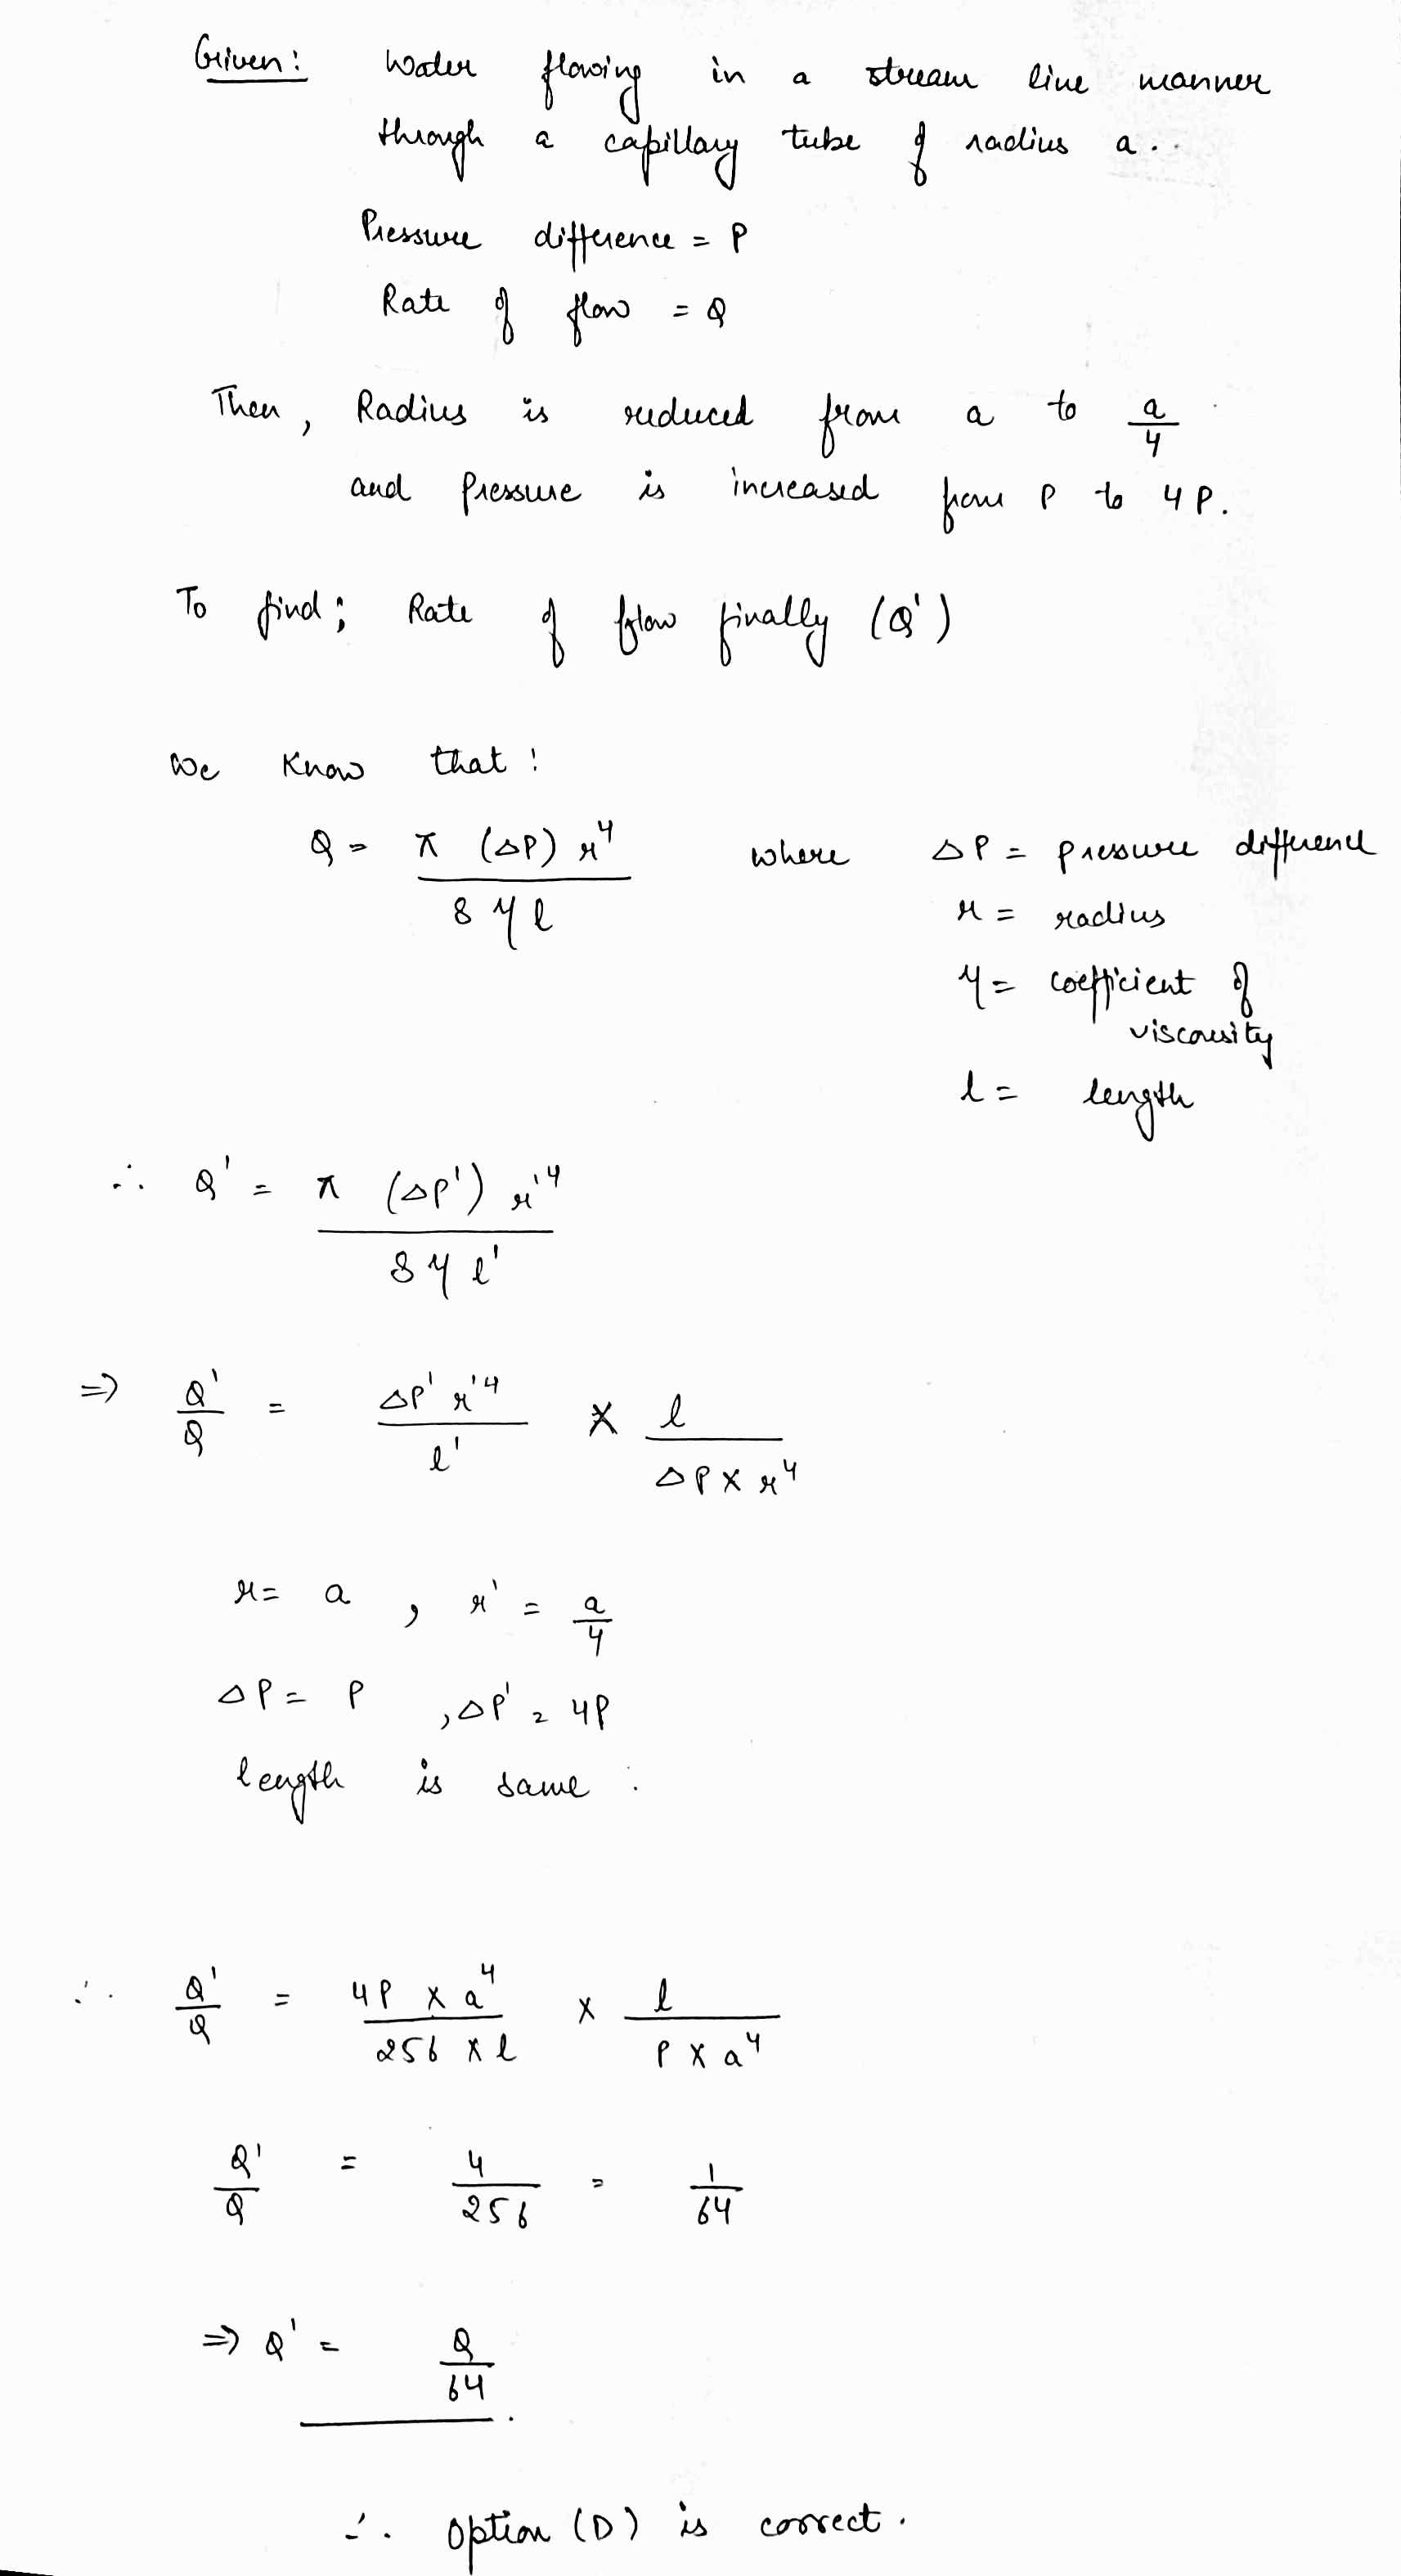 Given: Water flowing in a stream line manner
through a capillary tube of radius a..
Pressure difference = P
Rate of flow = Q
Then, Radius is reduced from a to a/4
and pressure is increased from P to 4P.
To find; Rate of flow finally (Q')
We know that:
Q = π (ΔP) r⁴ / 8 η l where ΔP = pressure difference
r = radius
η = coefficient of
viscousity
l = length
∴ Q' = π (ΔP') r'⁴ / 8 η l'
⇒ Q'/Q = ΔP' r'⁴ / l' × l / ΔP × r⁴
r = a , r' = a/4
ΔP = P , ΔP' = 4P
length is same .
∴ Q'/Q = 4P × a⁴ / 256 × l × l / P × a⁴
Q'/Q = 4/256 = 1/64
⇒ Q' = Q/64 .
∴ Option (D) is correct.